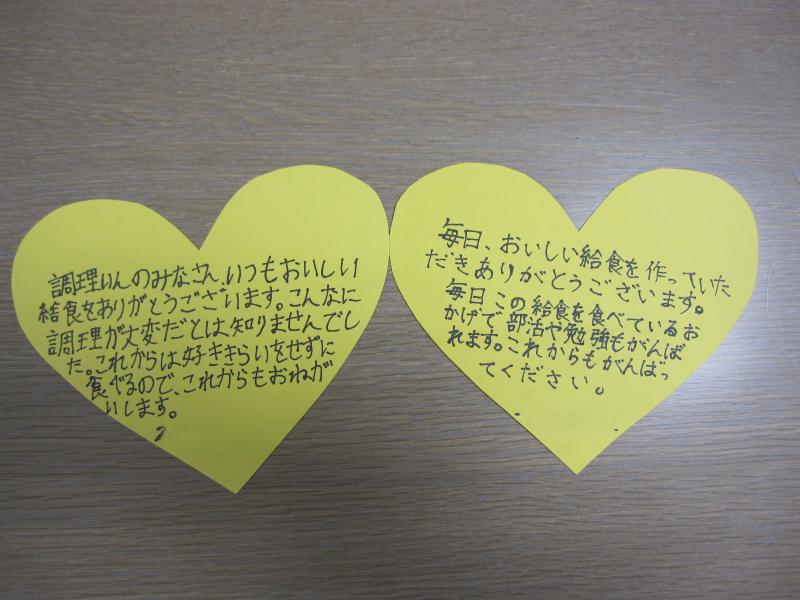 調理いんのみなさん、いつもおいしい
給食をありがとうございます。こんなに
調理が大変だとは、知りませんでし
た。これからは好ききらいをせずに
食べるので、これからもおねが
いします。
毎日、おいしい給食を作っていた
だきありがとうございます。
毎日この給食を食べているお
かげで部活や勉強もがんば
れます。これからもがんばっ
てください。